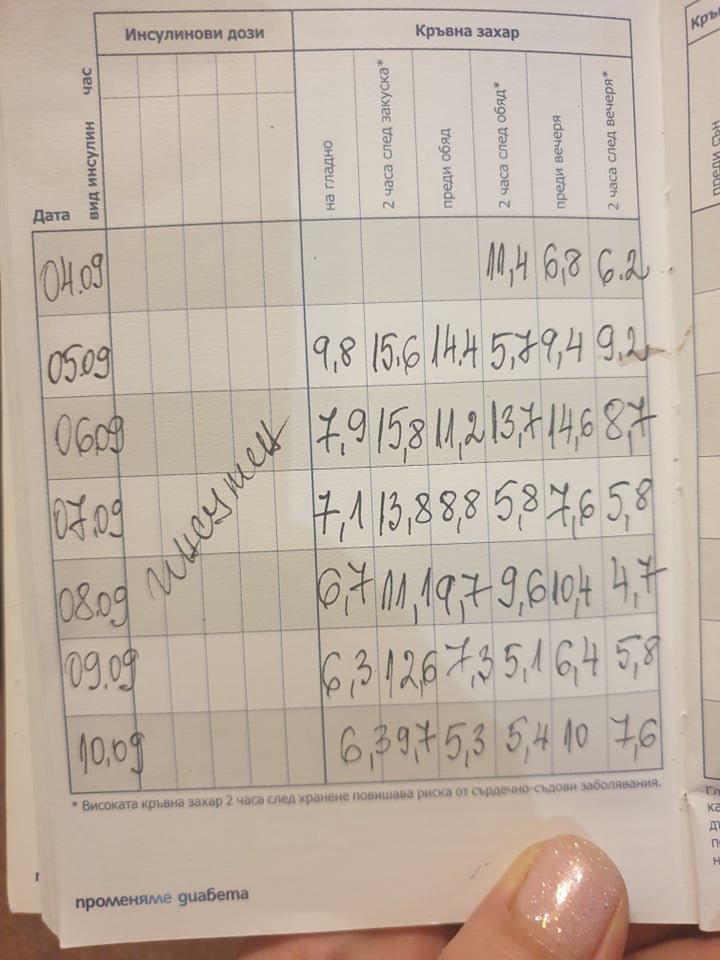 Инсулинови дози Кръвна захар
час
вид инсулин
Дата
на гладно
2 часа след закуска*
преди обяд
2 часа след обяд*
преди вечеря
2 часа след вечеря*
04.09 11,4 6,8 6.2
05.09 9,8 15.6 14.4 5,7 9,4 9,2
06.09 7,9 15,8 11,2 13,7 14,6 8,7
07.09 7,1 13,8 8,8 5,8 7,6 5,8
08.09 6,7 11,1 9,7 9,6 10,4 4,7
09.09 6,3 12,6 7,3 5,1 6,4 5,8
10.09 6,3 9,7 5,3 5,4 10 7,6
* Високата кръвна захар 2 часа след хранене повишава риска от сърдечно-съдови заболявания.
променяме диабета
преди сън